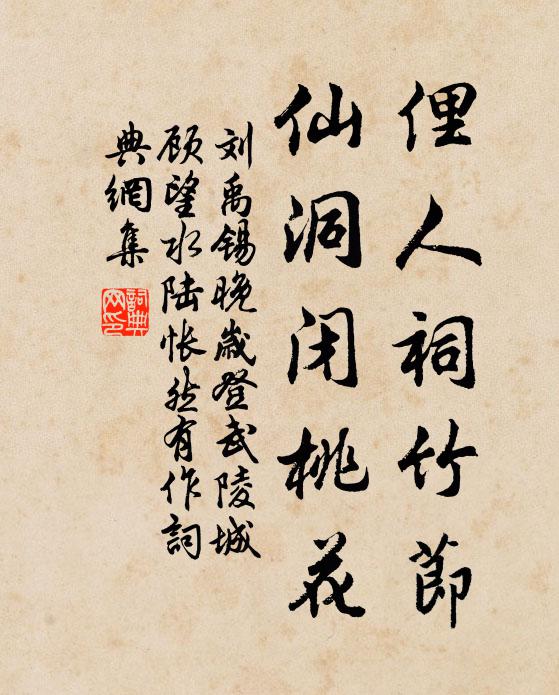 俚人祠竹節
仙洞闭桃花
刘禹锡晚歲登武陵城
顾望水陆怅然有作詞
典網集
詞典
网印